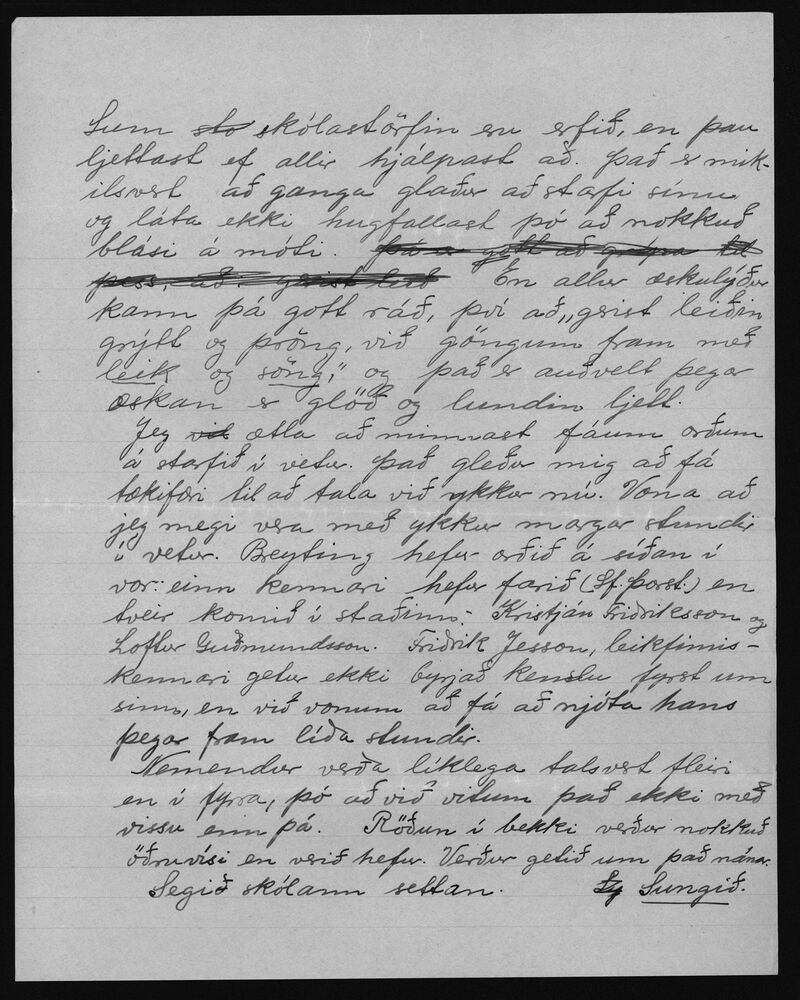 Sum skólastörfin eru erfið, en þau
ljettast ef allir hjálpast að. Það er mik-
ilsvert að ganga glaður að starfi sínu
og láta ekki hugfallast þó að nokkuð
blási á móti. þá er gott að grípa til
þess, að. En allur æskulýður
kann þá gott ráð, því að „gerist leiðin
grýtt og þröng, við göngum fram með
leik og söng," og það er auðvelt þegar
æskan er glöð og lundin ljett.
Jeg vil ætla að minnast fáum orðum
á starfið í vetur. Það gleður mig að fá
tækifæri til að tala við ykkur nú. Vona að
jeg megi vera með ykkur margar stundir
í vetur. Breyting hefur orðið á síðan í
vor: einn kennari hefur farið (Sf. Þorst.) en
tveir komið í staðinn: Kristján Friðriksson og
Loftur Guðmundsson. Friðrik Jesson, leikfimis-
kennari getur ekki byrjað kenslu fyrst um
sinn, en við vonum að fá að njóta hans
þegar fram líða stundir.
Nemendur verða líklega talsvert fleiri
en í fyrra, þó að við vitum það ekki með
vissu enn þá. Röðun í bekki verður nokkuð
öðruvísi en verið hefur. Verður getið um það nánar.
Segið skólann settan. Sungið.